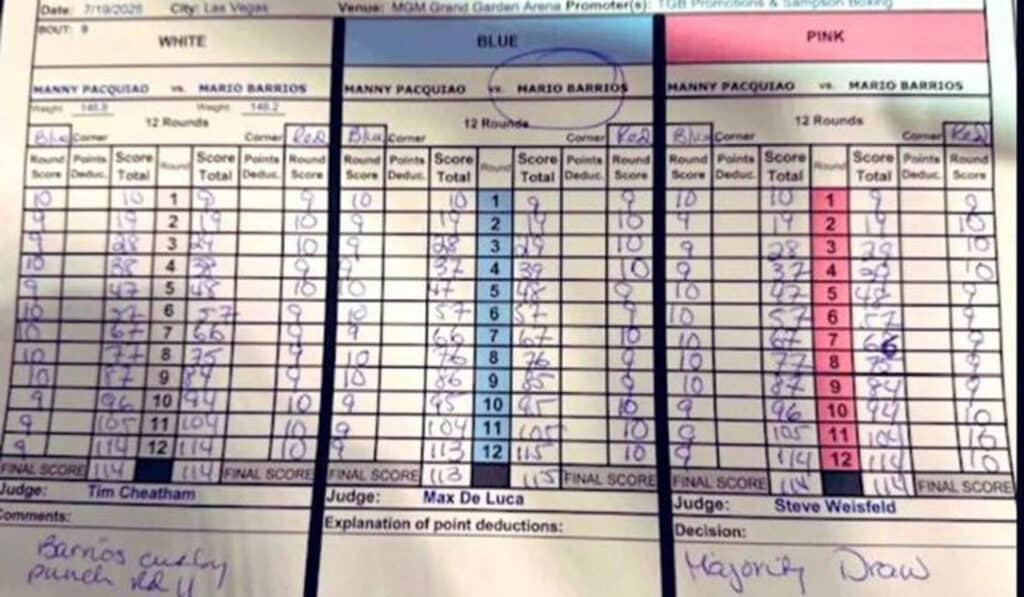 Date: 7/19/2025 City: Las Vegas Venue: MGM Grand Garden Arena Promoter(s): TGB Promotions & Sampson Boxing
BOUT: 9
WHITE BLUE PINK
MANNY PACQUIAO vs. MARIO BARRIOS MANNY PACQUIAO vs. MARIO BARRIOS MANNY PACQUIAO vs. MARIO BARRIOS
Weight: 146.8 Weight: 146.2
12 Rounds 12 Rounds 12 Rounds
Blue Corner Corner Red Blue Corner Corner Red Blue Corner Corner Red
Round Points Score Round Score Points Round Round Points Score Round Score Points Round Round Points Score Round Score Points Round
Score Deduc. Total Total Deduc. Score Score Deduc. Total Total Deduc. Score Score Deduc. Total Total Deduc. Score
10 10 1 9 9 10 10 1 9 9 10 10 1 9 9
9 19 2 19 10 9 19 2 19 10 9 19 2 19 10
9 28 3 29 10 9 28 3 29 10 9 28 3 29 10
10 38 4 38 9 9 37 4 39 10 9 37 4 10
9 47 5 48 10 10 47 5 48 9 10 47 5 48 9
10 57 6 57 9 10 57 6 57 9 10 57 6 57 9
10 67 7 66 9 9 66 7 67 10 10 67 7 66 9
10 77 8 75 9 10 76 8 76 9 10 77 8 75 9
10 87 9 84 9 10 86 9 85 9 10 87 9 84 9
9 96 10 94 10 9 95 10 95 10 9 96 10 94 10
9 105 11 104 10 9 104 11 105 10 9 105 11 104 10
9 114 12 114 10 9 113 12 115 10 9 114 12 114 10
FINAL SCORE 114 114 FINAL SCORE FINAL SCORE 113 115 FINAL SCORE FINAL SCORE 114 114 FINAL SCORE
Judge: Tim Cheatham Judge: Max De Luca Judge: Steve Weisfeld
Comments: Explanation of point deductions: Decision:
Barrios
punch RD 11
Majority Draw